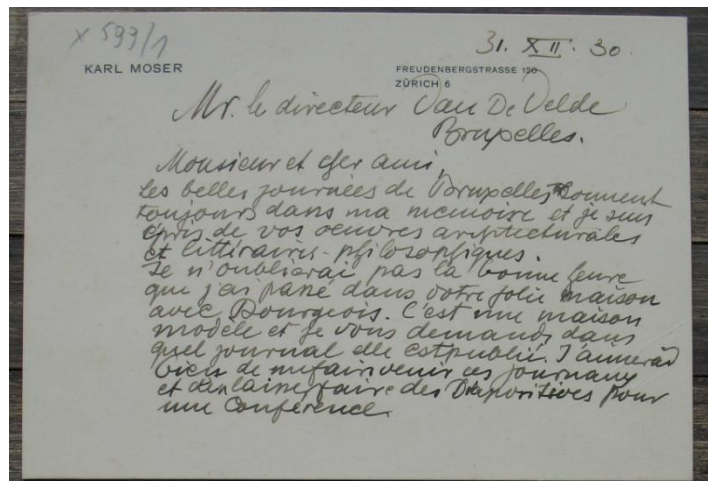 x 593/1
31. XII. 30.
KARL MOSER
FREUDENBERGSTRASSE 120
ZÜRICH 6
Mr. le directeur Van De Velde
Bruxelles.
Monsieur et cher ami,
Les belles journées de Bruxelles
toujours dans ma memoire et je suis
épris de vos oeuvres architecturales
et littéraires-philosophiques.
Je n'oublierai pas la bonne heure
que j'ai passé dans votre jolie maison
avec Bourgeois. C'est une maison
modèle et je vous demande dans
quel journal elle est publié. J'aimerais
bien de me faire venir ces journaux
et faire des Diapositives pour
une Conférence.